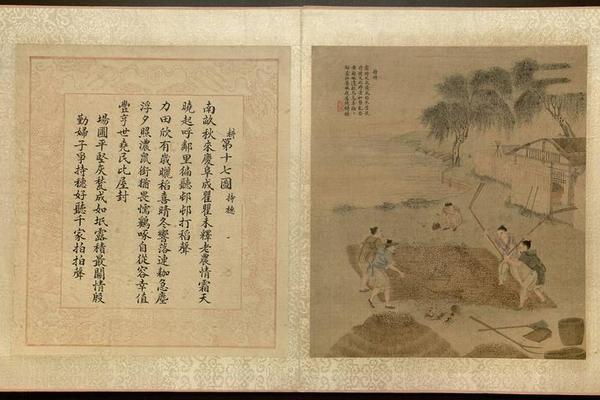 耕第十七圖 持穗
南畝秋來慶阜成瞿瞿未釋老農情霜天
曉起呼鄰里徧聽邨邨打稻聲
力田欣有歲曬稻喜晴冬響落連耞急塵
浮夕照濃鼠銜猶畏懦鷄啄自從容幸值
豐亨世堯民比屋封
場圃平堅灰甃成如坻露積最關情殷
勤婦子爭持穗好聽千家拍拍聲
持穗